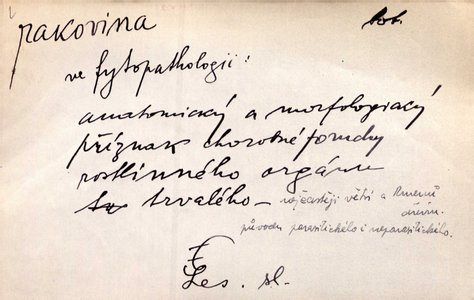 rakovina bot.
ve fytopathologii:
anatomický a morfologický
příznak chorobné poruchy
rostlinného orgánu
trvalého – nejčastěji větví a kmenů
dřevin.
původu parasitického i neparasitického.
Les. sl.